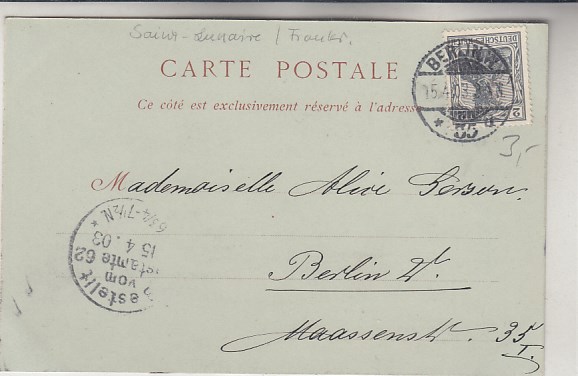 Saint-Lunaire / Frankr.
CARTE POSTALE
Ce côté est exclusivement réservé à l'adresse
BERLIN.W.
15.4.03
* 35 d
DEUTSCHES
2
3,-
Mademoiselle Alice Gerson.
Berlin W.
Maassenstr. 35 I.
Bestellt
vom
Postamte 62
15 4. 03
6¾-7½N *